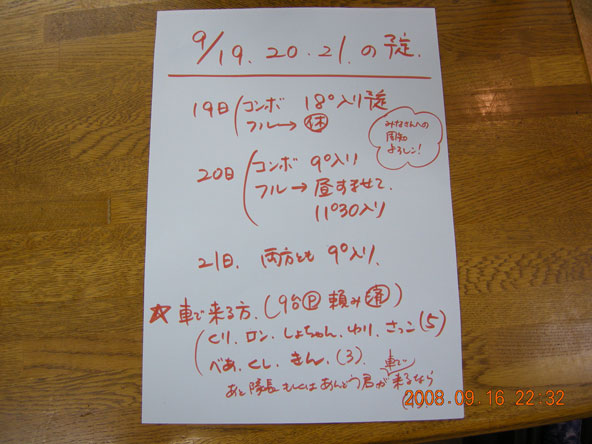 9/19.20.21.の予定.
19日 コンボ 18°入り予定
フル→休
みなさんへの
周知
よろしこ!
20日 コンボ 9°入り
フル→昼すませて.
11°30入り
21日. 両方とも 9°入り.
☆車で来る方.(9台P頼み済)
くり.ロン.しょちゃん.ゆり.さっこ(5)
べあ.くし.きん.(3).
あと隊長もしくはあんどう君が車で来るなら
2008.09.16 22:32